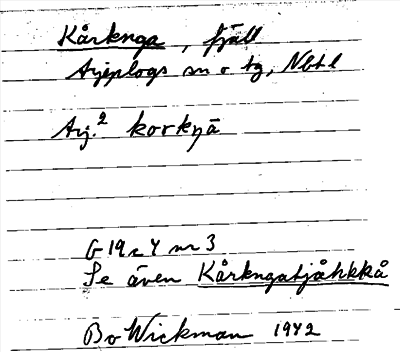 Kårknga, fjäll
Arjeplogs sn o tg, Nbtl
Arj.² korkŋā
G 19 c 4 nr 3
Se även Kårkngatjåhkkå
Bo Wickman 1942